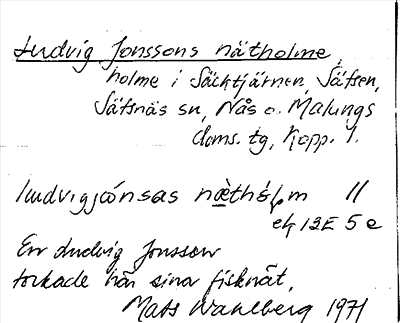 Ludvig Jonssons nätholme,
holme i Säcktjärnen, Säfsen,
Säfsnäs sn, Nås o. Malungs
doms. tg, Kopp. l.
ludvigjónsas næthól̥m //
ek 12E 5 e
En Ludvig Jonsson
torkade här sina fisknät.
Mats Wahlberg 1971